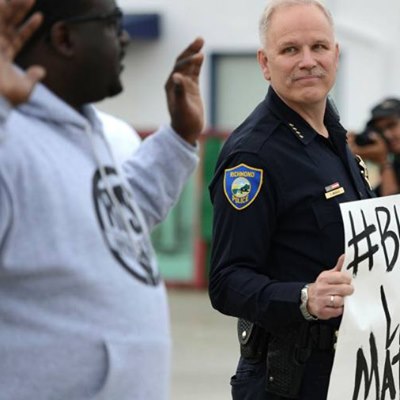 RICHMOND
POLICE
#B
L
MAT